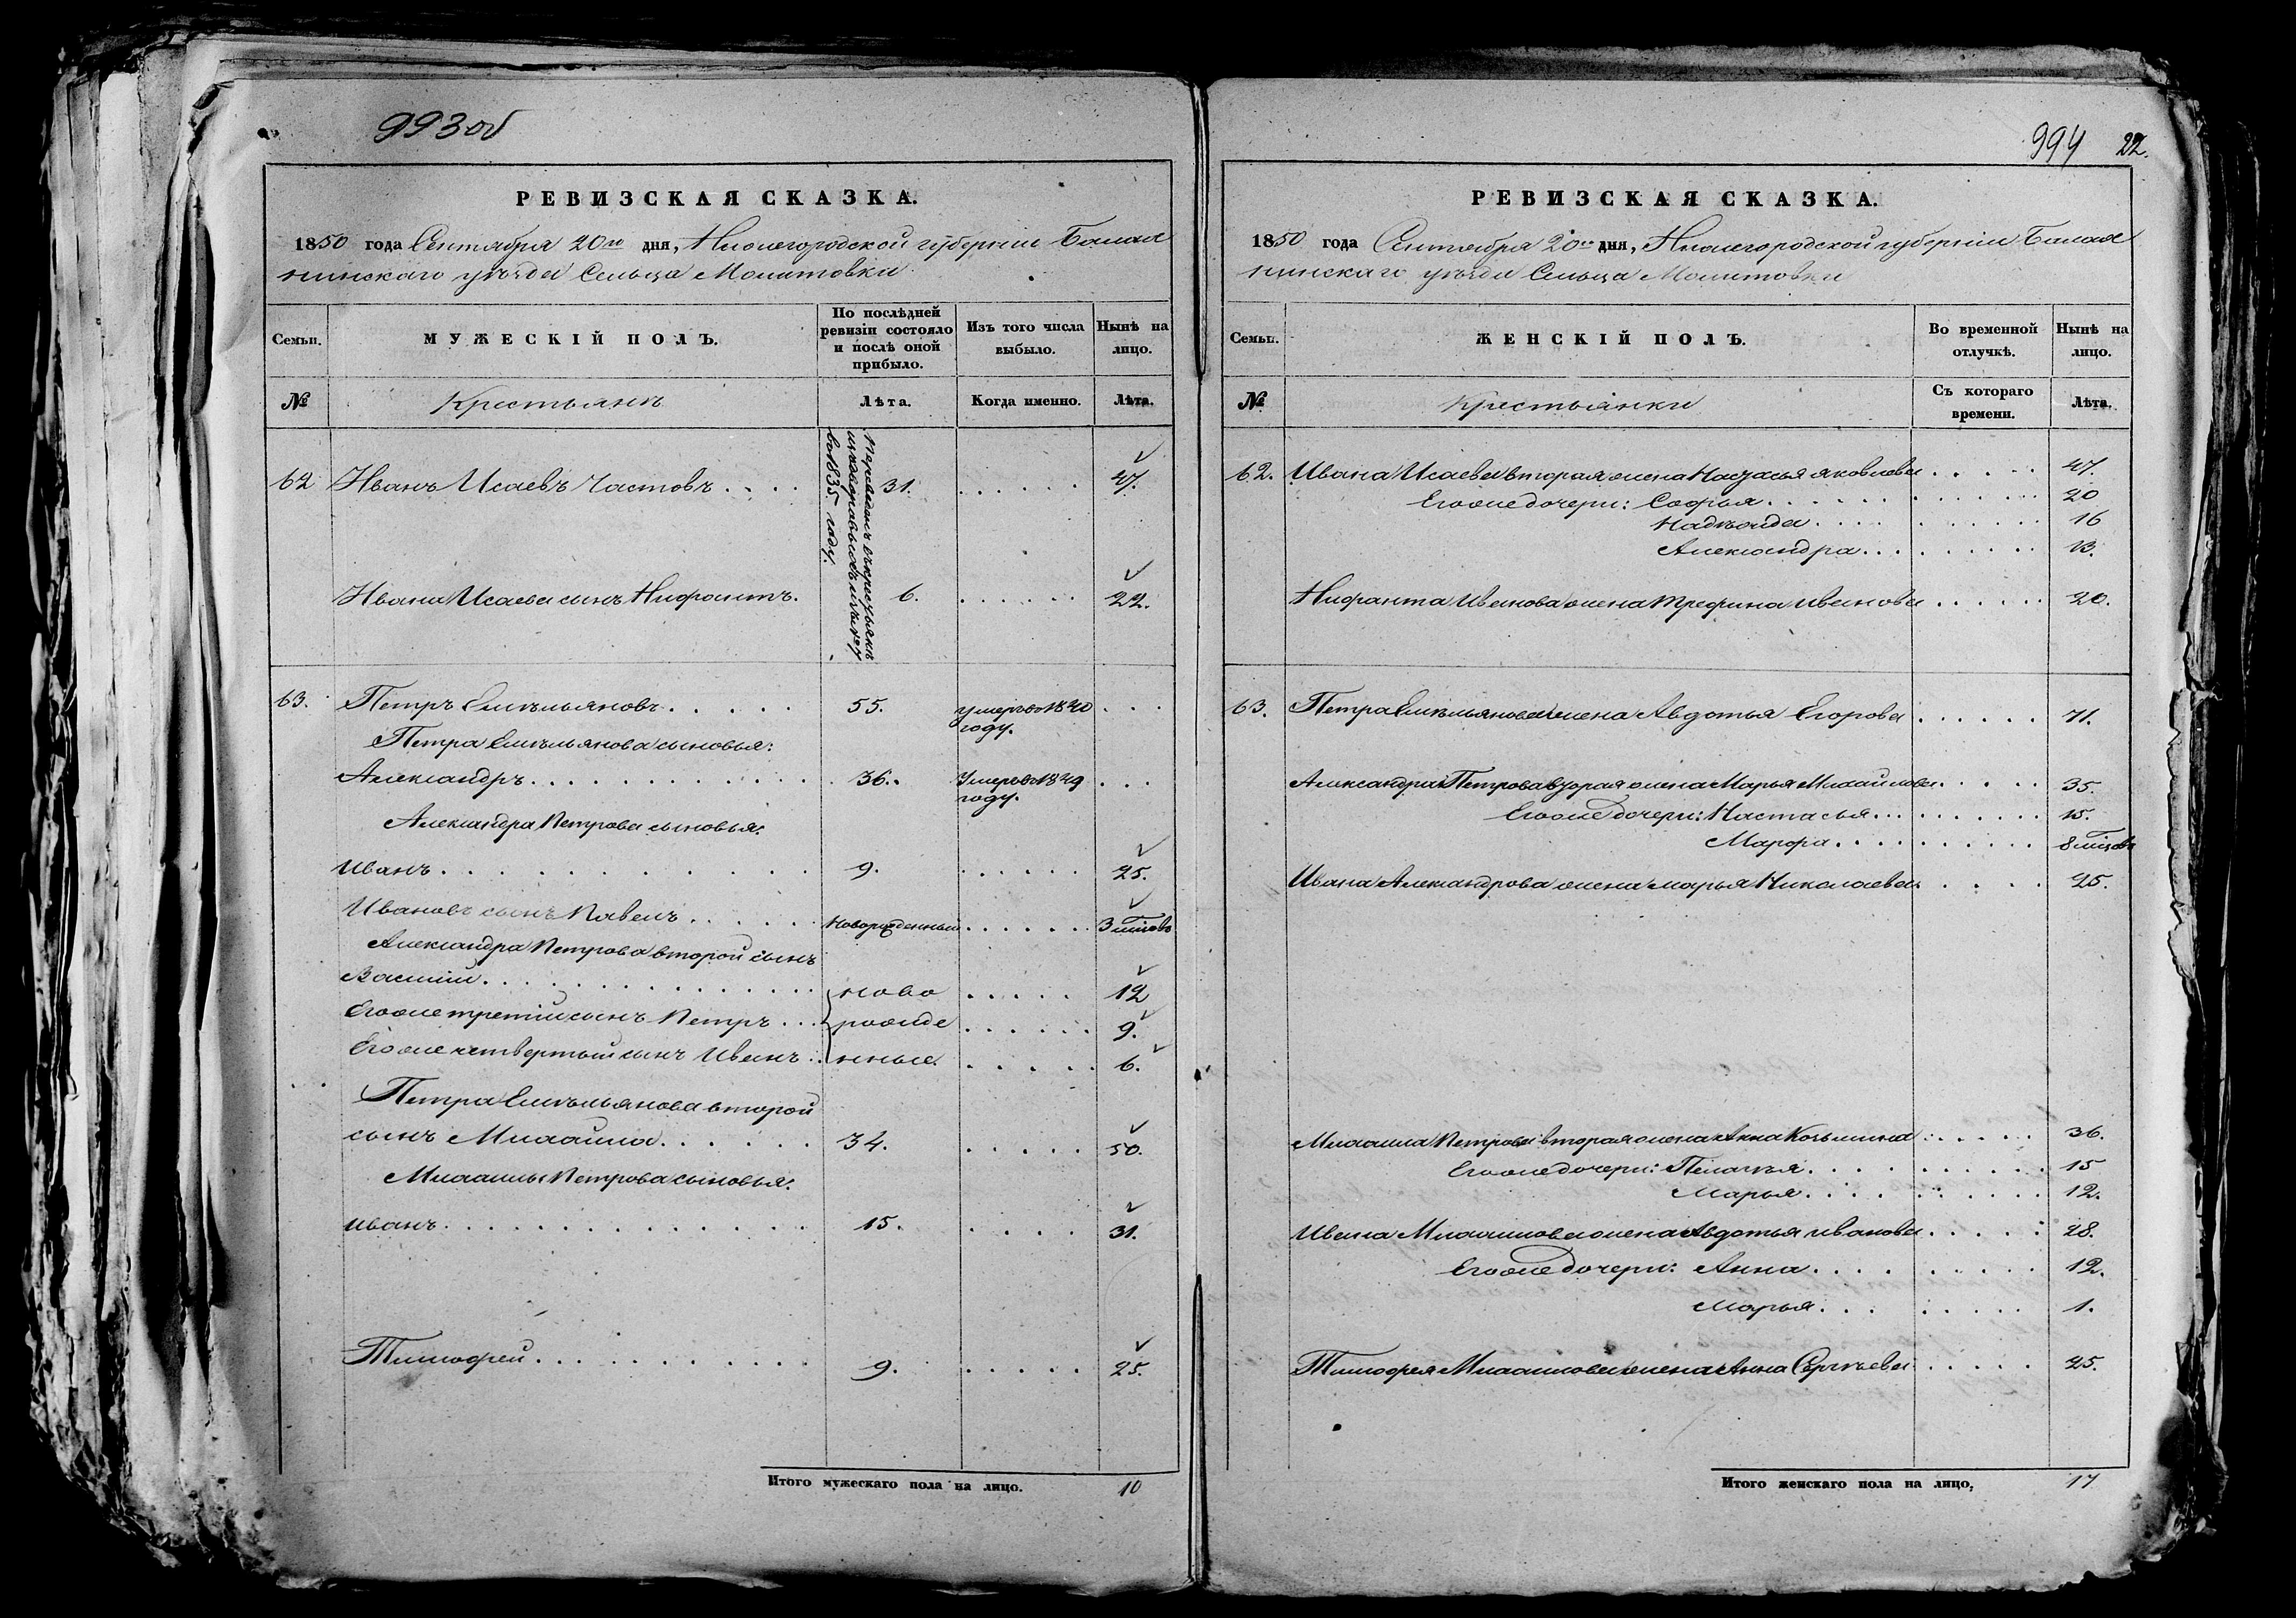 993об
РЕВИЗСКАЯ СКАЗКА.
1850 года Сентября 20го дня, Нижегородской губерніи Балах
нинскаго уѣзда Сельца Молитовки
Семьи. МУЖЕСКІЙ ПОЛЪ. По послѣдней ревизіи состояло и послѣ оной прибыло. Изъ того числа выбыло. Нынѣ на лицо.
№ Крестьянъ Лѣта. Когда именно. Лѣта.
62 Иванъ Исаевъ Частовъ . . . . 31. . . . . . . 47.
Переведенъ въ крестьяне
изъ дворовыхъ
въ 1835 году.
Ивана Исаева сынъ Нифонтъ. 6. . . . . . . 22.
63. Петръ Емельяновъ . . . . . 55. умеръ въ 1840 году. . . .
Петра Емельянова сыновья:
Александръ . . . . . . . . . . . 36. Умеръ въ 1849 году. . . .
Александра Петрова сыновья:
Иванъ . . . . . . . . . . . 9. . . . . . . 25.
Ивановъ сынъ Павелъ . . . . . Новорожденный . . . . . . 3 мѣсяцъ
Александра Петрова второй сынъ
Василій . . . . . . . . . . . . ново . . . . . 12
Егоже третій сынъ Петръ . . . рожде . . . . . . 9.
Егоже четвертый сынъ Иванъ . . нные. . . . . . 6.
Петра Емельянова второй
сынъ Михайла . . . . . . 34. . . . . . 50.
Михаилы Петрова сыновья:
Иванъ . . . . . . . . . . . . 15. . . . . 31.
Тимофей . . . . . . . . . . . 9. . . . . . 25.
Итого мужескаго пола на лицо. 10
994 22.
РЕВИЗСКАЯ СКАЗКА.
1850 года Сентября 20го дня, Нижегородской губерніи Балах
нинскаго уѣзда Сельца Молитовки
Семьи. ЖЕНСКІЙ ПОЛЪ. Во временной отлучкѣ. Нынѣ на лицо.
№ Крестьянки Съ котораго времени. Лѣта.
62. Ивана Исаева вторая жена Настасья Яковлева . . . . . 47.
Егоже дочери: Софья . . . . . . . . . . . . 20
Надежда . . . . . . . . . . . 16
Александра . . . . . . . . . 13.
Нифанта Иванова жена Трефина Иванова . . . . . . 20.
63. Петра Емельянова жена Авдотья Егорова . . . . . . 71.
Александра Петрова вторая жена Марья Михайлова . . . . . 35.
Егоже дочери: Настасья . . . . . . . . . . 15.
Марфа . . . . . . . . . . 8 мѣсяцъ
Ивана Александрова жена Марья Николаева . . . . 25.
Михаила Петрова вторая жена Анна Козьмина . . . . . 36.
Егоже дочери: Пелагья . . . . . . . . . . 15
Марья . . . . . . . . . . 12.
Ивана Михаилова жена Авдотья Иванова . . . . . 28.
Егоже дочери: Анна . . . . . . . . . . 12.
Марья . . . . . . . . 1.
Тимофея Михаилова жена Анна Сергѣева . . . . . 25.
Итого женскаго пола на лицо, 17